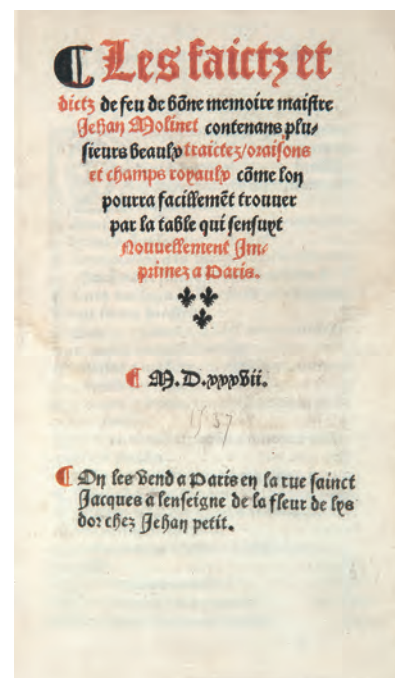 ¶ Les faictz et
dictz de feu de bõne memoire maistre
Jehan Molinet contenans plu⸗
sieurs beaulx traictez/oraisons
et champs royaulx cõme lon
pourra facillemẽt trouuer
par la table qui sensuyt
Nouuellement Im⸗
primez a Paris.
¶ M.D.xxxvii.
1537
¶ On les vend a Paris en la rue sainct
Jacques a lenseigne de la fleur de lys
dor chez Jehan petit.